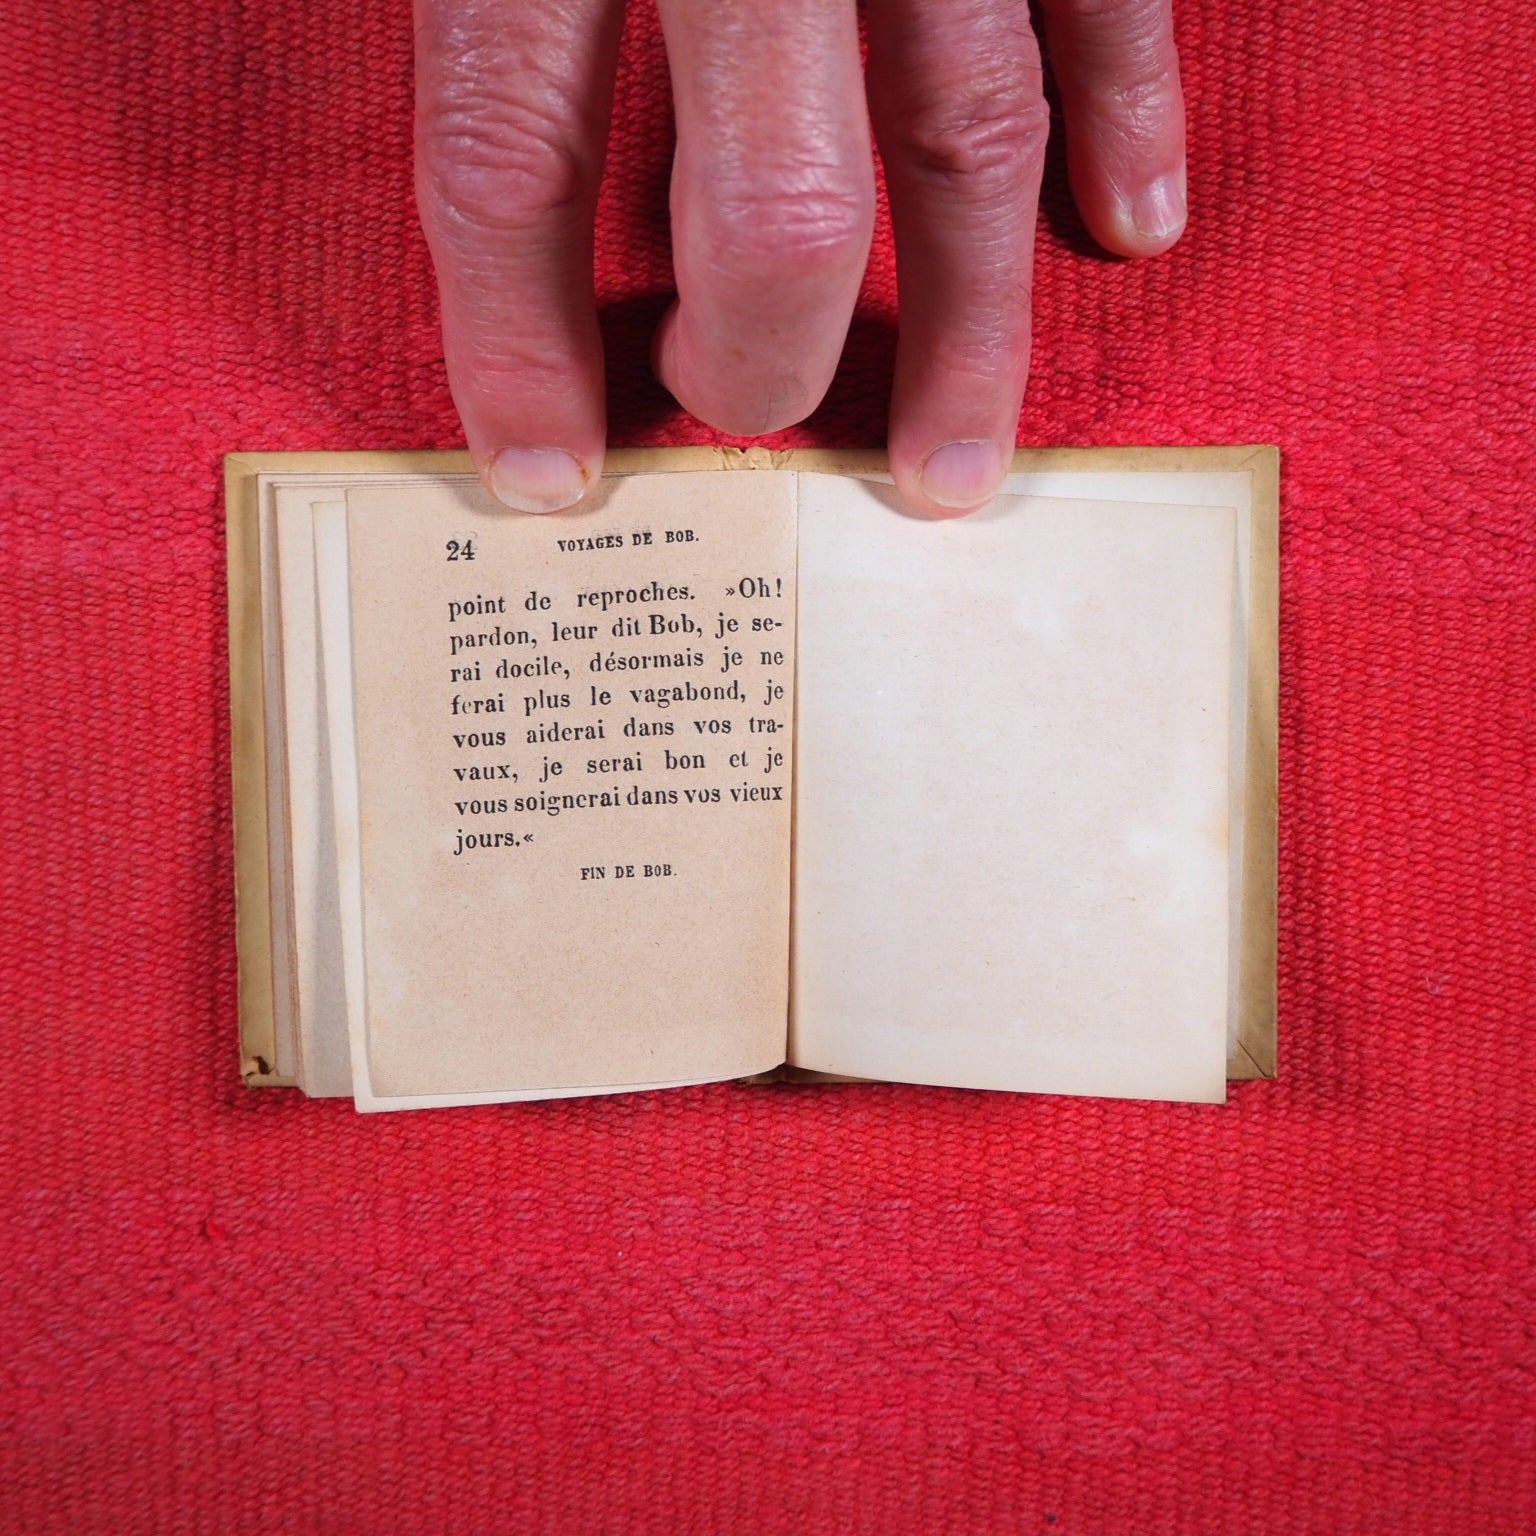 24 VOYAGES DE BOB.
point de reproches. »Oh!
pardon, leur dit Bob, je se-
rai docile, désormais je ne
ferai plus le vagabond, je
vous aiderai dans vos tra-
vaux, je serai bon et je
vous soignerai dans vos vieux
jours.«
FIN DE BOB.